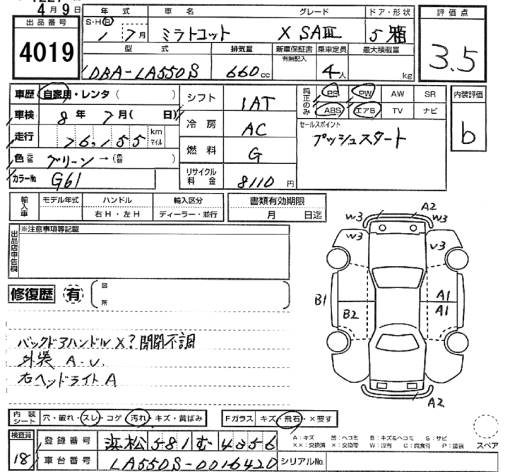 4月9日
出品番号
4019
年式 車名 グレード ドア・形状
S・H・R 1年 7月 ミラトコット X SAⅢ 5 箱
評価点
3.5
型式 排気量 新車保証書 有無記入 乗車定員 最大積載量
DBA-LA550S 660cc 4人 kg
車歴 自家用・レンタ( )
車検 8年 7月( 日)
走行 76,155 km マイル
色 グリーン→( )
カラーNo G61
シフト 1AT
冷房 AC
燃料 G
リサイクル料金 8110円
純正のみ PS PW AW SR
ABS エアB TV ナビ
セールスポイント
プッシュスタート
内装評価
b
輸入車 モデル年式 ハンドル 輸入区分
年 右H・左H ディーラー・並行
書類有効期限
月 日迄
出品店申告欄
※注意事項等記載
修復歴 有 箇所
バックドアハンドルX?開閉不調
外装 A.U.
右ヘッドライトA
A2
W3 W3
W3 V3
B1
B2
A1
A1
A1
A2
内装シート 穴・破れ・スレ・コゲ・汚れ・キズ・黄ばみ
Fガラス キズ・飛石・X要す
検査員
18
登録番号 浜松 581 む 4356
車台番号 LA550S-0016420
シリアルNo.
A:キズ 凹:ヘコミ B:キズ&ヘコミ S:サビ
スペア